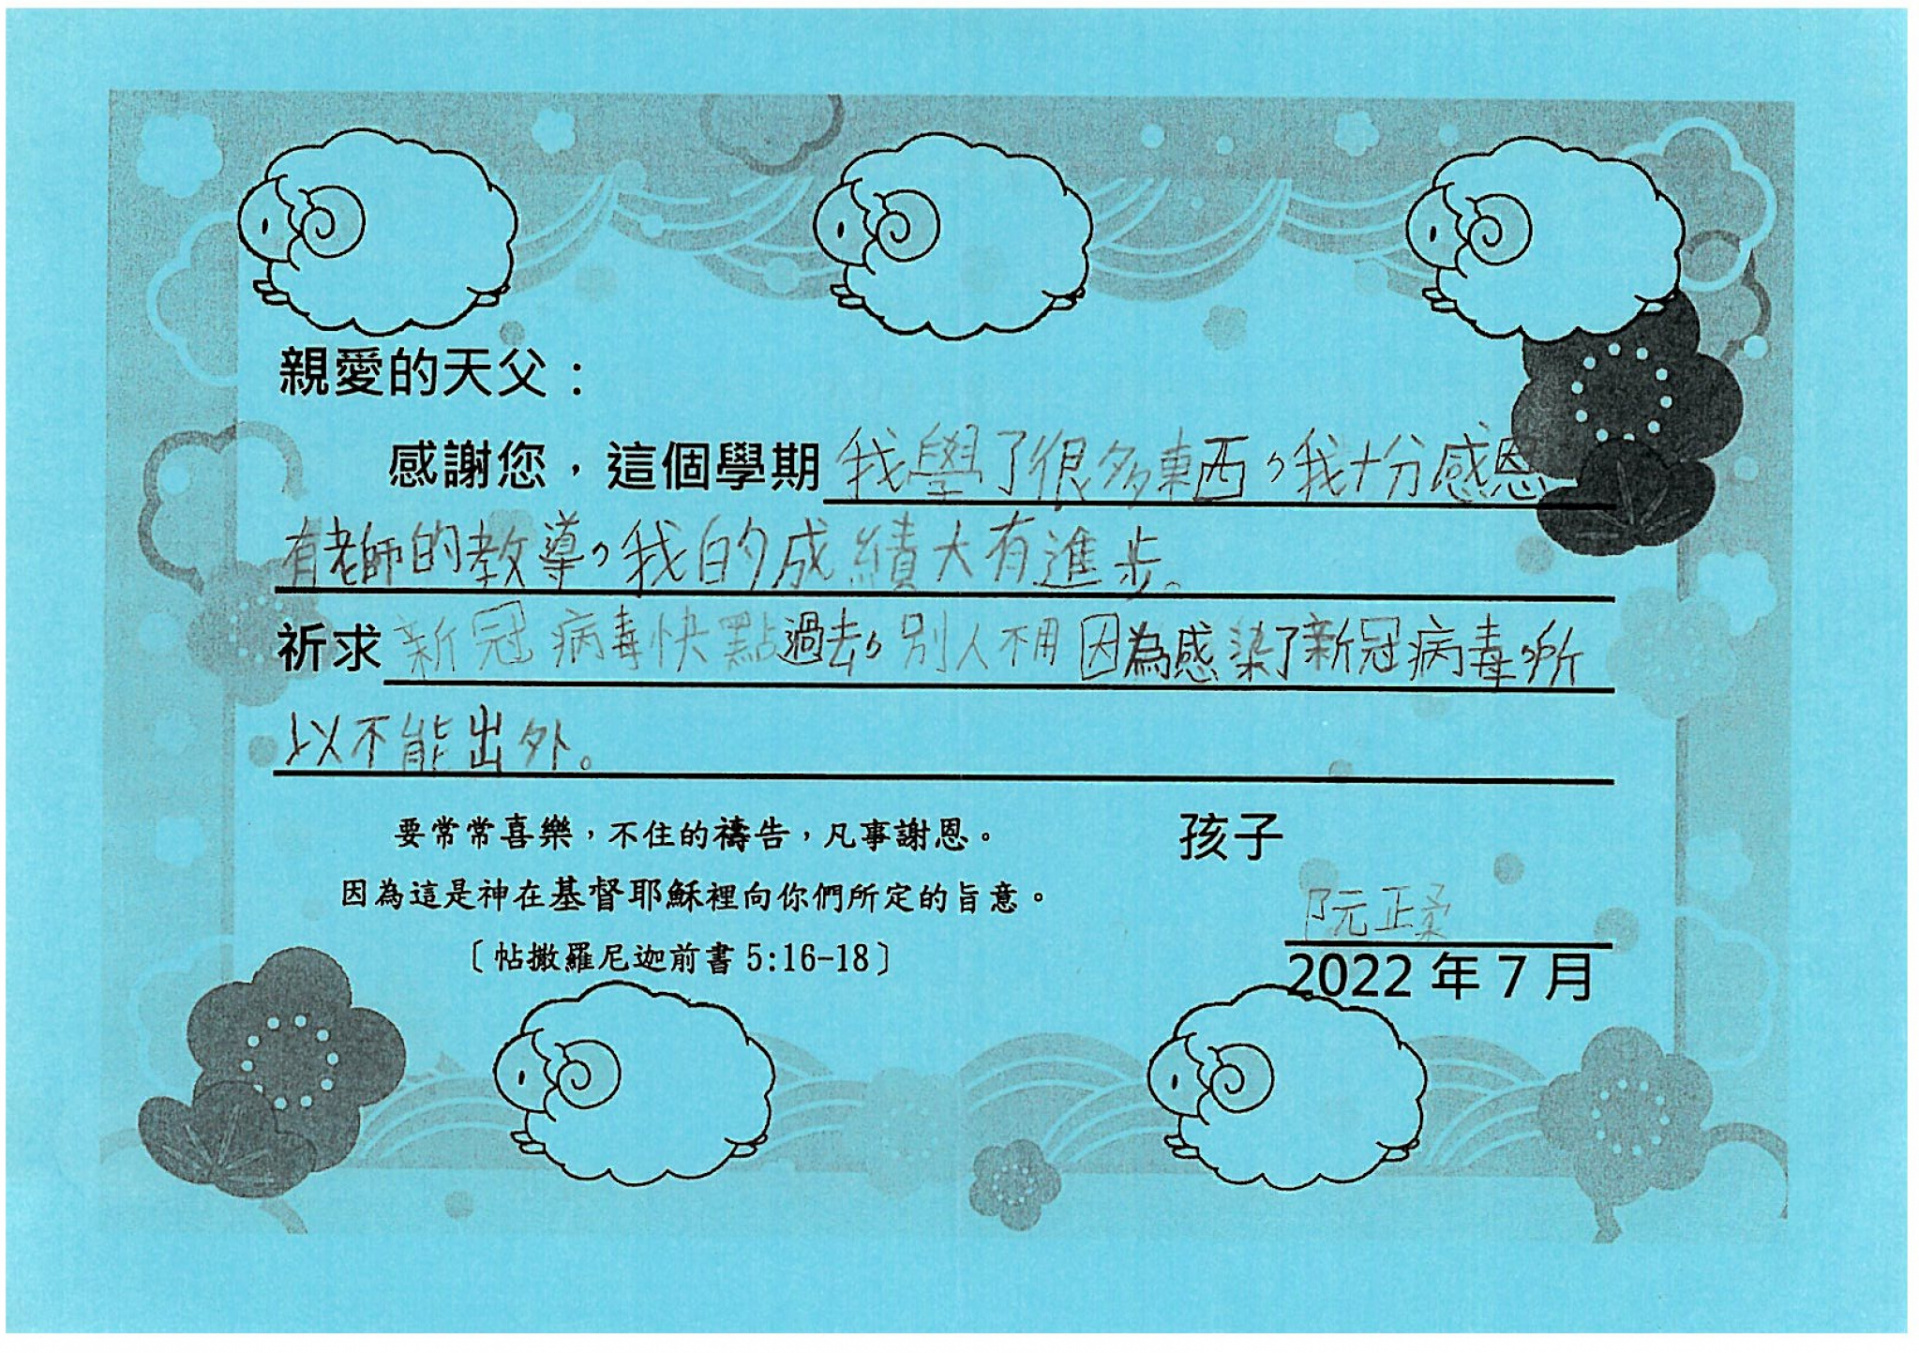 親愛的天父：
感謝您，這個學期我學了很多東西，我十分感恩
有老師的教導，我的成績大有進步。
祈求新冠病毒快點過去，別人不用因為感染了新冠病毒，所
以不能出外。
要常常喜樂，不住的禱告，凡事謝恩。
因為這是神在基督耶穌裡向你們所定的旨意。
〔帖撒羅尼迦前書 5:16-18〕
孩子
阮正柔
2022 年 7 月